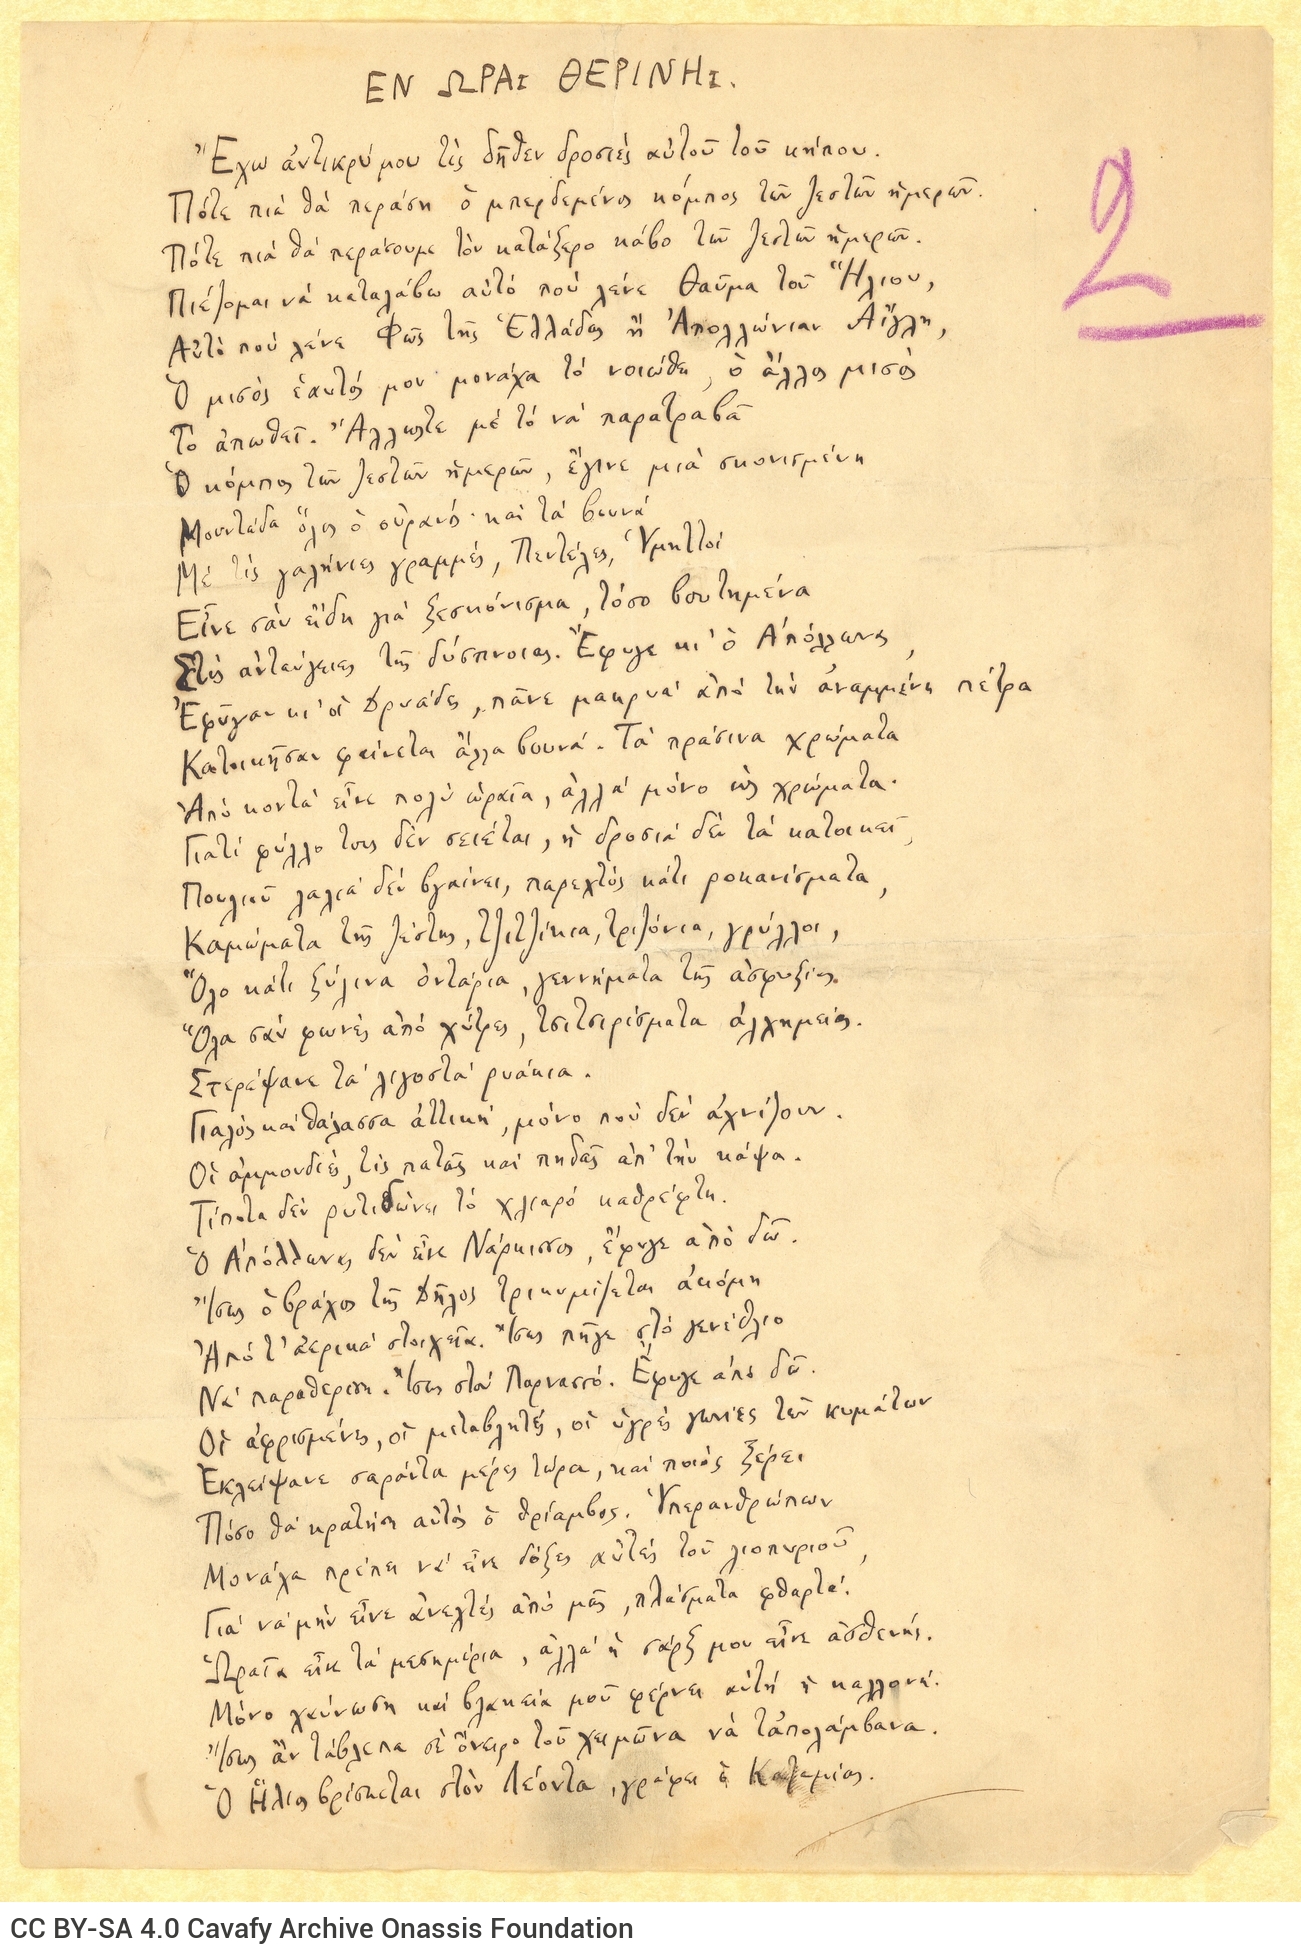 ΕΝ ΩΡΑΙ ΘΕΡΙΝΗΙ.
2
Ἔχω ἀντικρύ μου τὶς δῆθεν δροσιὲς αὐτοῦ τοῦ κήπου.
Πότε πιὰ θὰ περάση ὁ μπερδεμένος κόμπος τῶν ζεστῶν ἡμερῶν.
Πότε πιὰ θὰ περάσουμε τὸν κατάξερο κάβο τῶν ζεστῶν ἡμερῶν.
Πιέζομαι νὰ καταλάβω αὐτὸ ποὺ λένε Θαῦμα τοῦ Ἥλιου,
Αὐτὸ ποὺ λένε Φῶς τῆς Ἑλλάδος ἢ Ἀπολλώνιαν Αἴγλη,
Ὁ μισὸς ἑαυτός μου μονάχα τὸ νοιώθει, ὁ ἄλλος μισὸς
Τὸ ἀπωθεῖ. Ἄλλωστε μὲ τὸ νὰ παρατραβᾶ
Ὁ κόμπος τῶν ζεστῶν ἡμερῶν, ἔγινε μιὰ σκονισμένη
Μουντάδα ὅλος ὁ οὐρανός· καὶ τὰ βουνὰ
Μὲ τὶς γαλήνιες γραμμές, Πεντέλες, Ὑμηττοὶ
Εἶνε σὰν εἴδη γιὰ ξεσκόνισμα, τόσο βουτημένα
Στὶς ἀνταύγειες τῆς δύσπνοιας. Ἔφυγε κι' ὁ Ἀπόλλωνας,
Ἐφύγαν κι' οἱ Δρυάδες, πᾶνε μακρυὰ ἀπὸ τὴν ἀναμμένη πέτρα
Κατοικῆσαν φαίνεται ἄλλα βουνά. Τὰ πράσινα χρώματα
Ἀπὸ κοντὰ εἶνε πολὺ ὡραῖα, ἀλλὰ μόνο ὡς χρώματα.
Γιατὶ φύλλο τους δὲν σειέται, ἡ δροσιὰ δὲν τὰ κατοικεῖ,
Πουλιοῦ λαλιὰ δὲν βγαίνει, παρεχτὸς κάτι ροκανίσματα,
Καμώματα τῆς ζέστης, τζιτζίκια, τριζόνια, γρύλλοι,
Ὅλο κάτι ξύλινα ὀντάρια, γεννήματα τῆς ἀσφυξίας.
Ὅλα σὰν φωνὲς ἀπὸ χύτρες, τσιτσιρίσματα ἀλχημείας.
Στερέψανε τὰ λιγοστὰ ρυάκια.
Γιαλὸς καὶ θάλασσα ἀττική, μόνο ποὺ δὲν ἀχνίζουν.
Οἱ ἀμμουδιές, τὶς πατᾶς καὶ πηδᾶς ἀπ' τὴν κάψα.
Τίποτα δὲν ρυτιδώνει τὸ χλιαρὸ καθρέφτη.
Ὁ Ἀπόλλωνας δὲν εἶνε Νάρκισσος, ἔφυγε ἀπὸ δῶ.
Ἴσως ὁ βράχος τῆς Δήλος τρικυμίζεται ἀκόμη
Ἀπὸ τ' ἀερικὰ στοιχεῖα. Ἴσως πῆγε στὸ γενέθλιο
Νὰ παραθερίση. Ἴσως στὸν Παρνασσό. Ἔφυγε ἀπὸ δῶ.
Οἱ ἀφρισμένες, οἱ μεταβλητές, οἱ ὑγρὲς γωνίες τῶν κυμάτων
Ἐκλείψανε σαράντα μέρες τώρα, καὶ ποιὸς ξέρει
Πόσο θὰ κρατήση αὐτὸς ὁ θρίαμβος. Ὑπερανθρώπων
Μονάχα πρέπει νὰ εἶνε δόξες αὐτὲς τοῦ λιοπυριοῦ,
Γιὰ νὰ μὴν εἶνε ἀνεχτὲς ἀπὸ μᾶς, πλάσματα φθαρτά.
Ὡραῖα εἶνε τὰ μεσημέρια, ἀλλὰ ἡ σάρξ μου εἶνε ἀσθενής.
Μόνο χαύνωση καὶ βλακεία μοῦ φέρνει αὐτὴ ἡ καλλονή.
Ἴσως ἂν τἄβλεπα σὲ ὄνειρο τοῦ χειμῶνα νὰ τἀπολάμβανα.
Ὁ Ἥλιος βρίσκεται στὸν Λέοντα, γράφει ὁ Καζαμίας.
CC BY-SA 4.0 Cavafy Archive Onassis Foundation